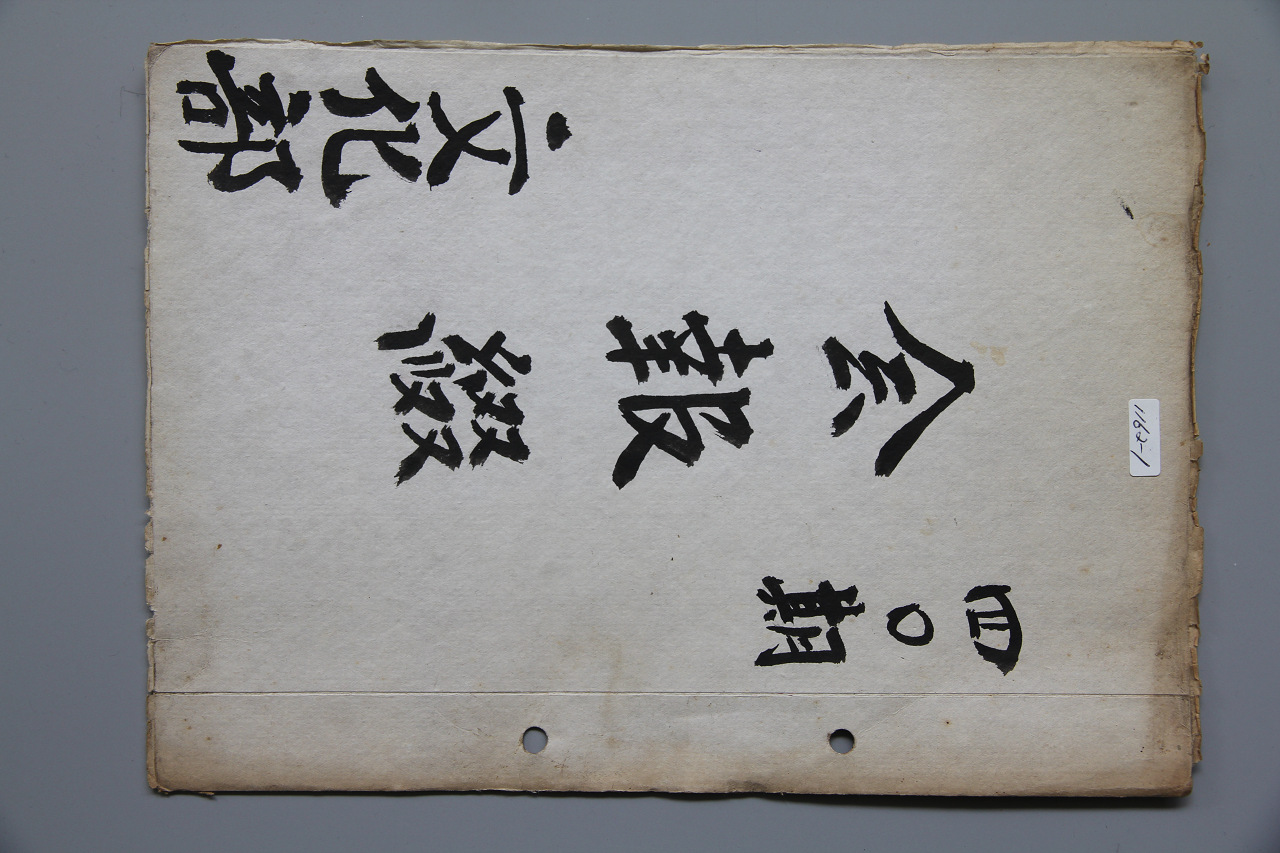 1162-1
四〇期
会報綴
文化部